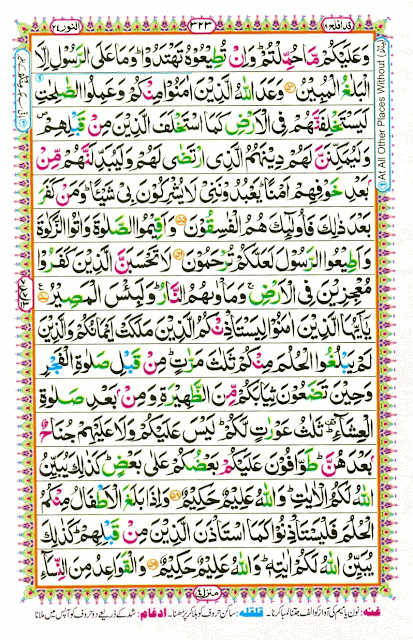 قد افلح ۱۸
۳۲۳
النور ۲۴
وَعَلَيْكُمْ مَّا حُمِّلْتُمْ ؕ وَاِنْ تُطِيْعُوْهُ تَهْتَدُوْا ؕ وَمَا عَلَى الرَّسُوْلِ اِلَّا
الْبَلٰغُ الْمُبِيْنُ ۝۵۴ وَعَدَ اللّٰهُ الَّذِيْنَ اٰمَنُوْا مِنْكُمْ وَعَمِلُوا الصّٰلِحٰتِ
لَيَسْتَخْلِفَنَّهُمْ فِى الْاَرْضِ كَمَا اسْتَخْلَفَ الَّذِيْنَ مِنْ قَبْلِهِمْ ۪
وَلَيُمَكِّنَنَّ لَهُمْ دِيْنَهُمُ الَّذِى ارْتَضٰى لَهُمْ وَلَيُبَدِّلَنَّهُمْ مِّنْۢ
بَعْدِ خَوْفِهِمْ اَمْنًا ؕ يَعْبُدُوْنَنِىْ لَا يُشْرِكُوْنَ بِىْ شَيْـًٔا ؕ وَمَنْ كَفَرَ
بَعْدَ ذٰلِكَ فَاُولٰٓئِكَ هُمُ الْفٰسِقُوْنَ ۝۵۵ وَاَقِيْمُوا الصَّلٰوةَ وَاٰتُوا الزَّكٰوةَ
وَاَطِيْعُوا الرَّسُوْلَ لَعَلَّكُمْ تُرْحَمُوْنَ ۝۵۶ لَا تَحْسَبَنَّ الَّذِيْنَ كَفَرُوْا
مُعْجِزِيْنَ فِى الْاَرْضِ ۚ وَمَاْوٰىهُمُ النَّارُ ؕ وَلَبِئْسَ الْمَصِيْرُ ۝۵۷
يٰٓاَيُّهَا الَّذِيْنَ اٰمَنُوْا لِيَسْتَاْذِنْكُمُ الَّذِيْنَ مَلَكَتْ اَيْمَانُكُمْ وَالَّذِيْنَ
لَمْ يَبْلُغُوا الْحُلُمَ مِنْكُمْ ثَلٰثَ مَرّٰتٍ ؕ مِنْ قَبْلِ صَلٰوةِ الْفَجْرِ
وَحِيْنَ تَضَعُوْنَ ثِيَابَكُمْ مِّنَ الظَّهِيْرَةِ وَمِنْۢ بَعْدِ صَلٰوةِ
الْعِشَآءِ ۟ؕ ثَلٰثُ عَوْرٰتٍ لَّكُمْ ؕ لَيْسَ عَلَيْكُمْ وَلَا عَلَيْهِمْ جُنَاحٌۢ
بَعْدَهُنَّ ؕ طَوّٰفُوْنَ عَلَيْكُمْ بَعْضُكُمْ عَلٰى بَعْضٍ ؕ كَذٰلِكَ يُبَيِّنُ
اللّٰهُ لَكُمُ الْاٰيٰتِ ؕ وَاللّٰهُ عَلِيْمٌ حَكِيْمٌ ۝۵۸ وَاِذَا بَلَغَ الْاَطْفَالُ مِنْكُمُ
الْحُلُمَ فَلْيَسْتَاْذِنُوْا كَمَا اسْتَاْذَنَ الَّذِيْنَ مِنْ قَبْلِهِمْ ؕ كَذٰلِكَ
يُبَيِّنُ اللّٰهُ لَكُمْ اٰيٰتِهٖ ؕ وَاللّٰهُ عَلِيْمٌ حَكِيْمٌ ۝۵۹ وَالْقَوَاعِدُ مِنَ النِّسَآءِ
At All Other Places Without
منزل ۴
غنه: نون یا میم کی آواز کو الف جتنا لمبا کرنا۔ قلقله: ساکن حروف کو ہلا کر پڑھنا۔ ادغام: شد کے ذریعے دو حروف کو آپس میں ملانا